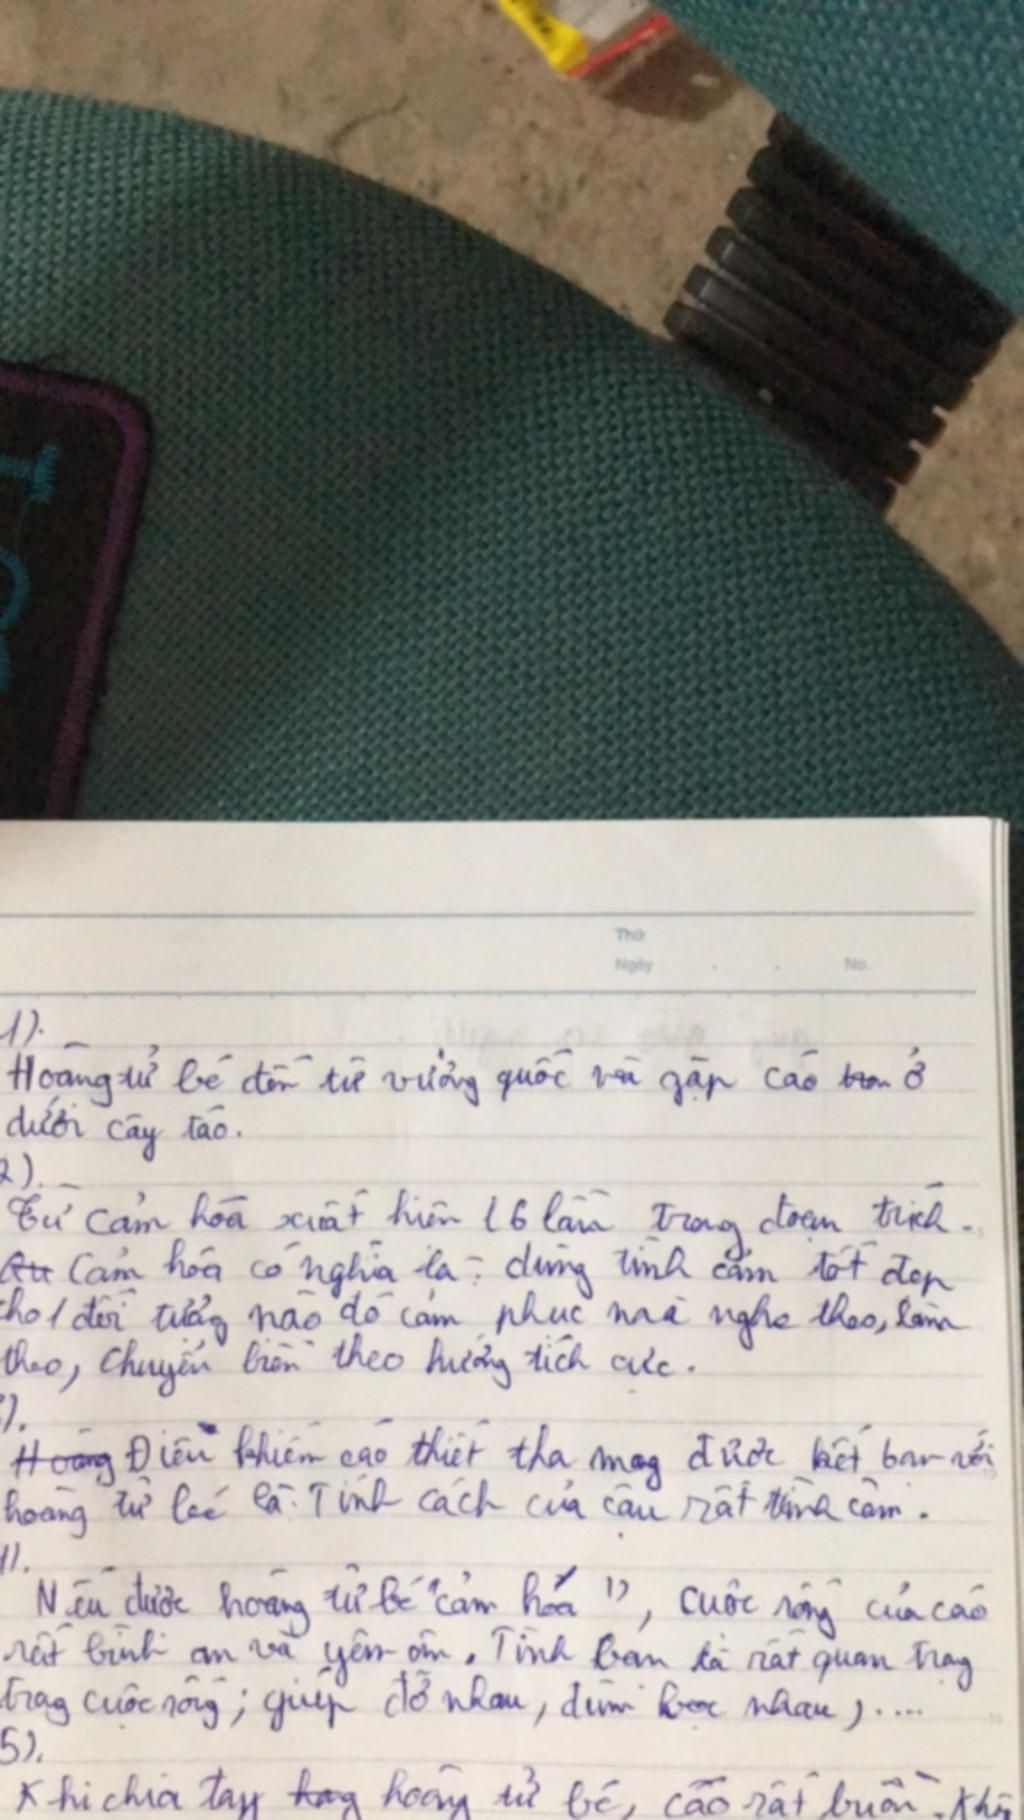 Thứ
Ngày . . No.
1).
Hoàng tử bé đến từ vương quốc và gặp cáo ở
dưới cây táo.
2).
Từ cảm hoá xuất hiện 16 lần trong đoạn trích.
Cảm hóa có nghĩa là: dùng tình cảm tốt đẹp
cho 1 đối tượng nào đó cảm phục mà nghe theo, làm
theo, chuyển biến theo hướng tích cực.
).
Hoàng Điều khiến cáo thiết tha mog được kết bạn với
hoàng tử bé là: Tính cách của cậu rất tình cảm.
).
Nếu được hoàng tử bé "cảm hoá", cuộc sống của cáo
rất bình an và yên ổn. Tình bạn là rất quan trọg
trog cuộc sống; giúp đỡ nhau, đùm bọc nhau,....
5).
Khi chia tay hoàng tử bé, cáo rất buồn.